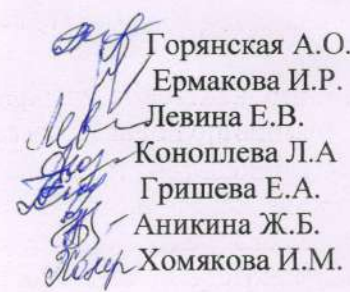 Горянская А.О.
Ермакова И.Р.
Левина Е.В.
Коноплева Л.А
Гришева Е.А.
Аникина Ж.Б.
Хомякова И.М.